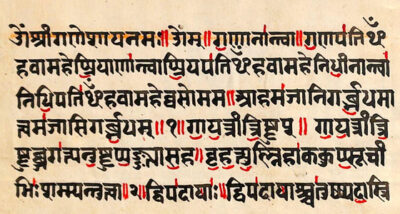 ॐ श्रीगणेशायनमः॥ ॐम्॥ गणानान्त्वा॥ गणपतिᳪ
हवामहेप्प्रियाणान्त्वाप्प्रियपतिᳪहवामहेनिधीनान्त्वा
निधिपतिᳪहवामहेव्वसोमम॥ आहमजानिगर्ब्भधमा
त्वमजासिगर्ब्भधम्॥१॥ गायत्रीत्रिष्टुप्॥ गायत्रीत्रि
ष्टुब्जगत्यनुष्टुप्पङ्क्त्यासह॥ बृहत्युष्णिहाककुप्प्सूची
भिःशम्यन्तुत्वा॥२॥ द्विपदायाः॥ द्विपदायाश्चतुष्प्पदास्त्रि